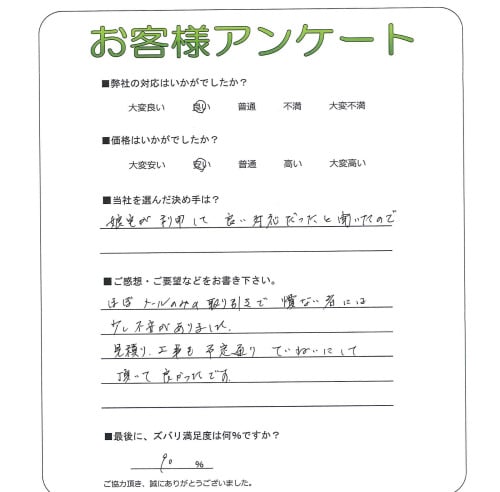 お客様アンケート
■弊社の対応はいかがでしたか？
大変良い 良い 普通 不満 大変不満
■価格はいかがでしたか？
大変安い 安い 普通 高い 大変高い
■当社を選んだ決め手は？
娘宅が利用して良い対応だったと聞いたので
■ご感想・ご要望などをお書き下さい。
ほぼメールのみの取り引きで慣ない者には
少し不安がありました。
見積り、工事も予定通りていねいにして
頂いて良かったです。
■最後に、ズバリ満足度は何％ですか？
90 ％
ご協力頂き、誠にありがとうございました。